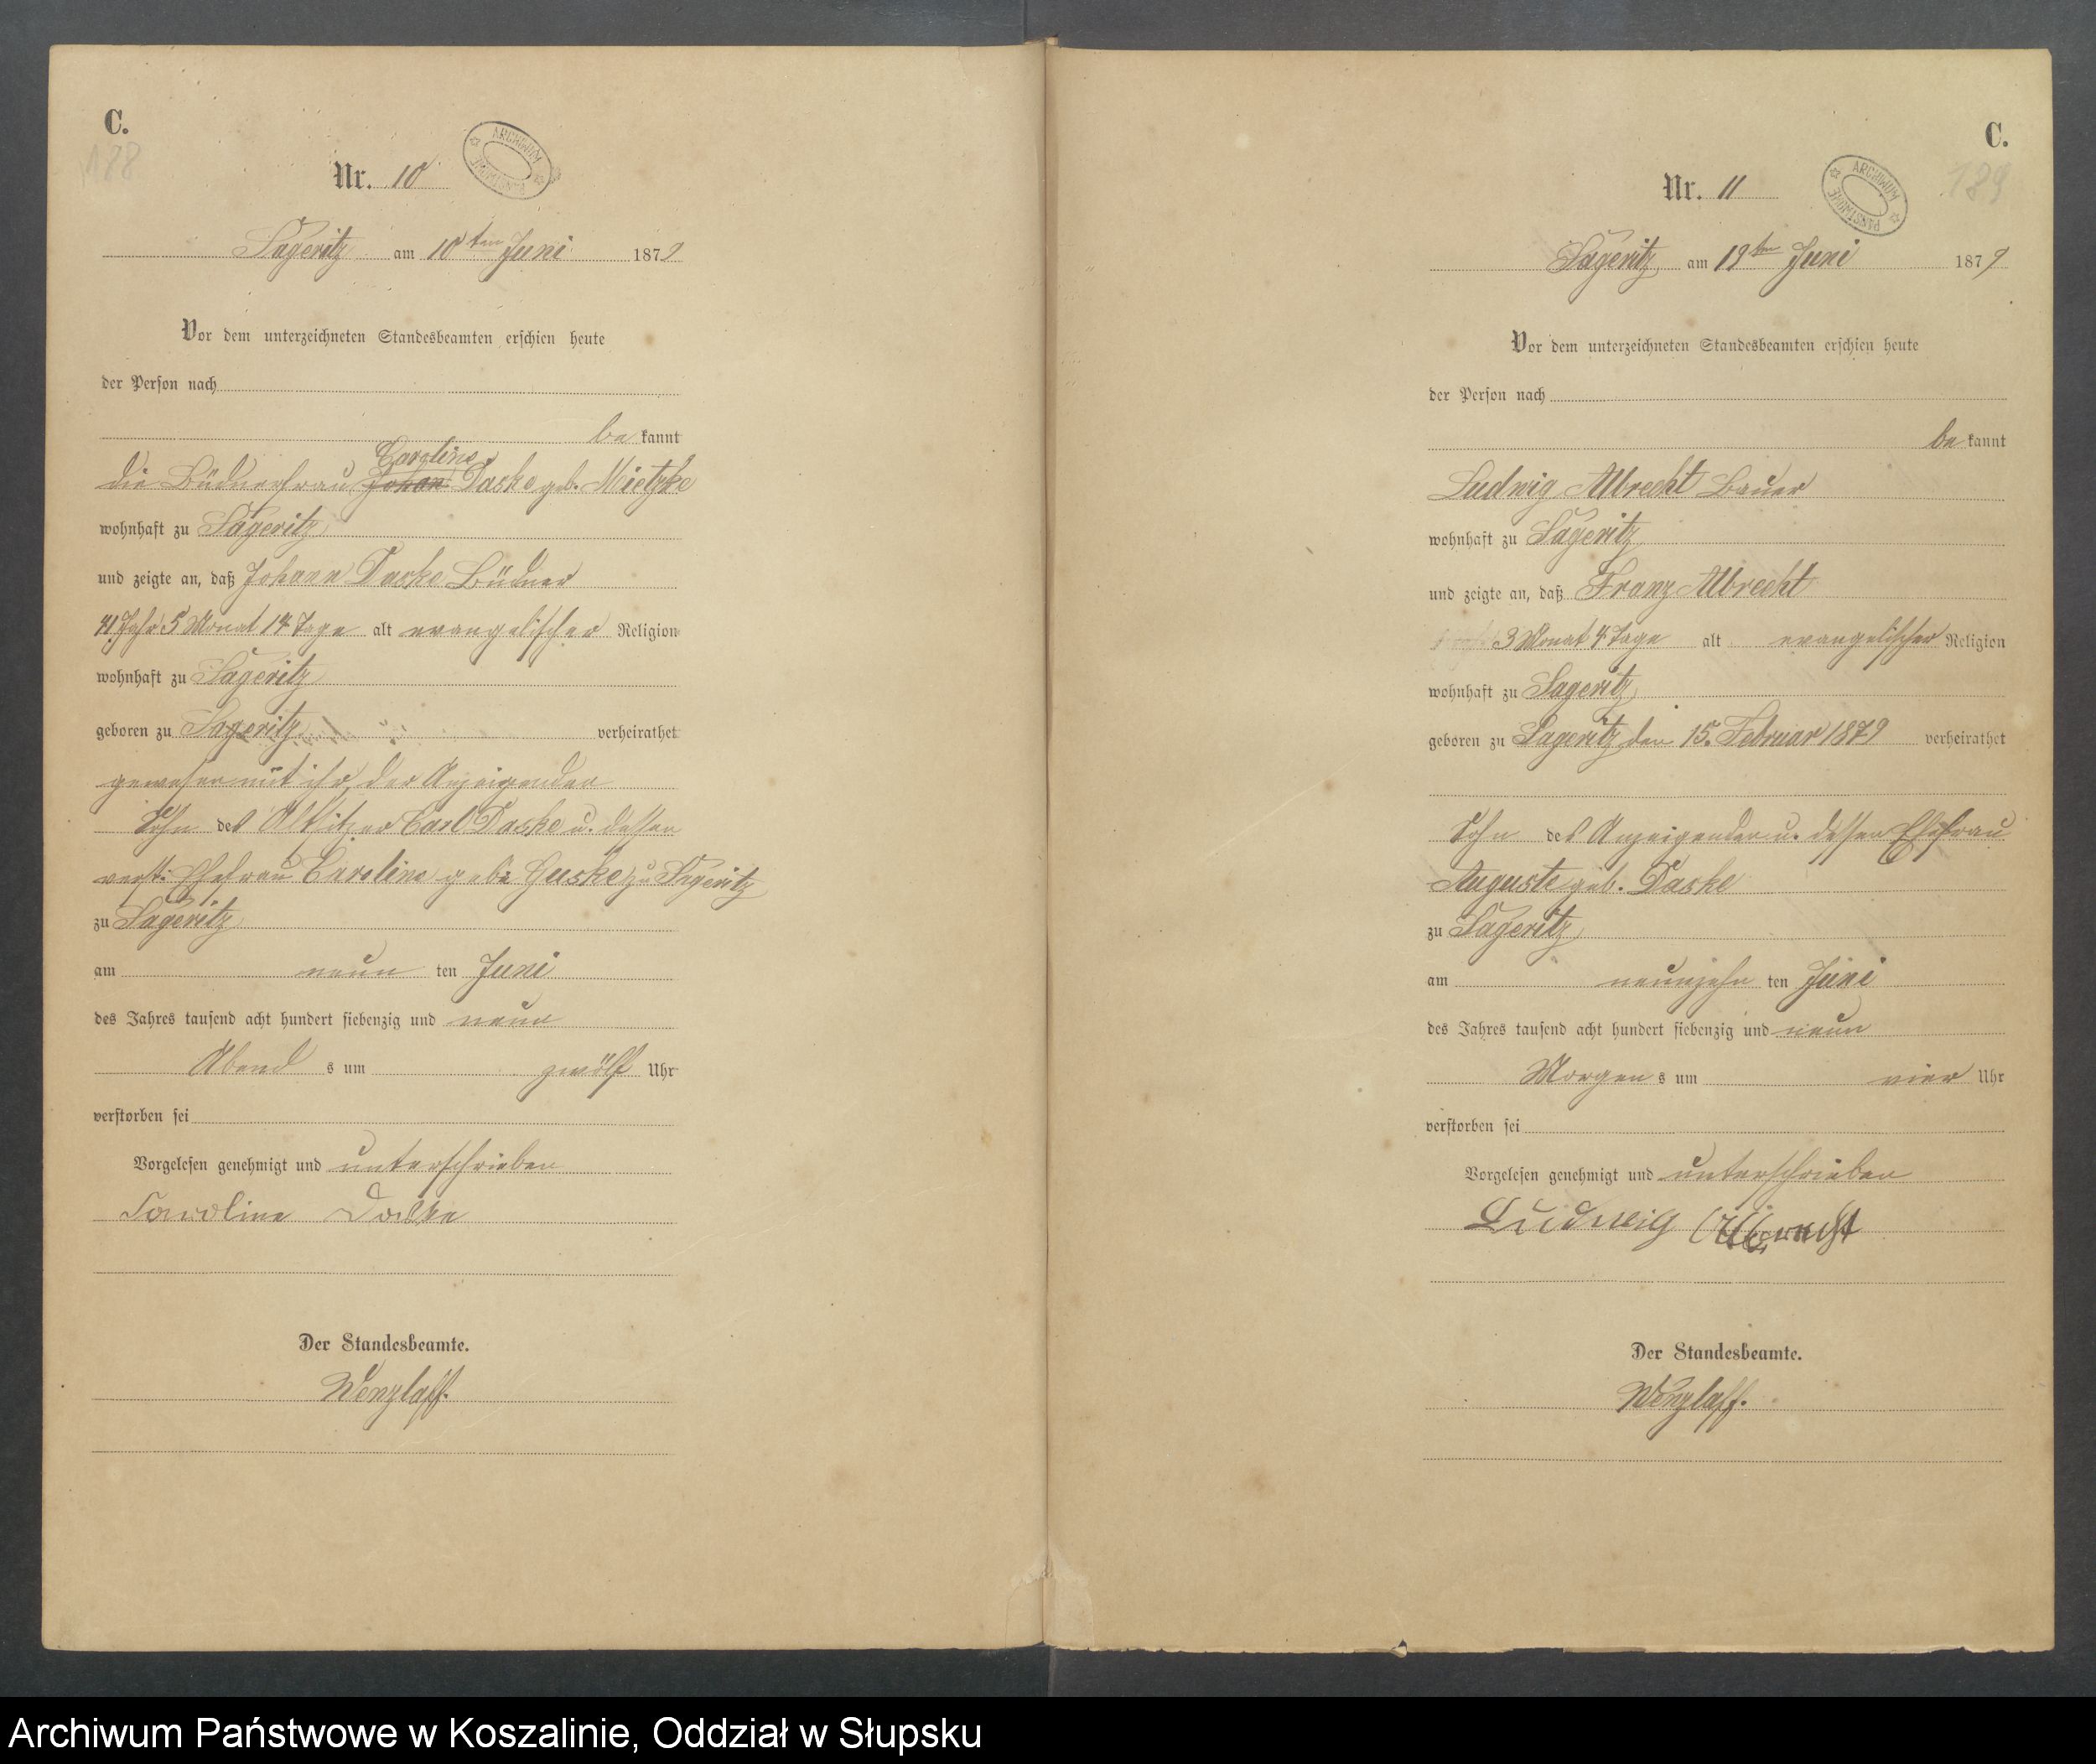 C.
188
Nr. 10
ARCHIWUM PAŃSTWOWE
Sageritz am 10ten Juni 1879
Vor dem unterzeichneten Standesbeamten erschien heute
der Person nach
be kannt
Caroline
die Büdnerfrau Johan Daske geb. Mietzke
wohnhaft zu Sageritz
und zeigte an, daß Johann Daske Büdner
41 Jahr 5 Monat 14 Tage alt evangelischer Religion
wohnhaft zu Sageritz
geboren zu Sageritz verheirathet
gewesen mit ihr, der Anzeigenden
Sohn des Altsitzer Carl Daske u. dessen
verst. Ehefrau Caroline geb. Guske zu Sageritz
zu Sageritz
am neun ten Juni
des Jahres tausend acht hundert siebenzig und neun
Abend s um zwölf Uhr
verstorben sei
Vorgelesen genehmigt und unterschrieben
Caroline Daske
Der Standesbeamte.
Wenzlaff.
C.
189
Nr. 11
ARCHIWUM PAŃSTWOWE
Sageritz am 19ten Juni 1879
Vor dem unterzeichneten Standesbeamten erschien heute
der Person nach
be kannt
Ludwig Albrecht Bauer
wohnhaft zu Sageritz
und zeigte an, daß Franz Albrecht
3 Monat 4 Tage alt evangelischer Religion
wohnhaft zu Sageritz
geboren zu Sageritz den 15. Februar 1879 verheirathet
Sohn des Anzeigenden u. dessen Ehefrau
Auguste geb. Daske
zu Sageritz
am neunzehn ten Juni
des Jahres tausend acht hundert siebenzig und neun
Morgen s um vier Uhr
verstorben sei
Vorgelesen genehmigt und unterschrieben
Ludwig Albrecht
Der Standesbeamte.
Wenzlaff.
Archiwum Państwowe w Koszalinie, Oddział w Słupsku